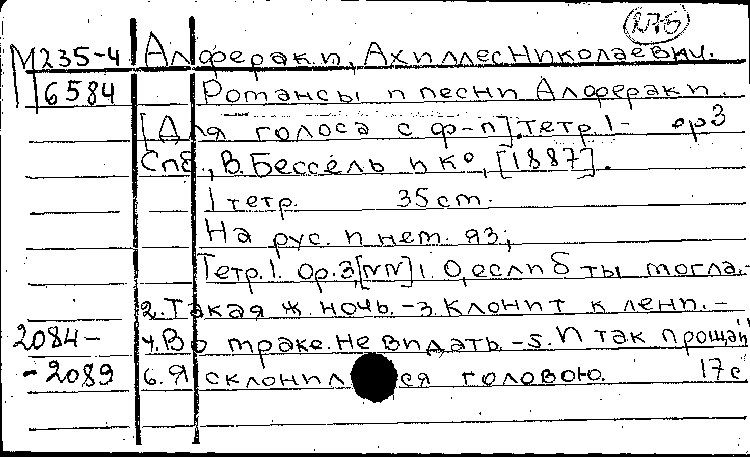 276
М235-4 Алфераки, Ахиллес Николаевич.
6584 Романсы и песни Алфераки.
[Для голоса с ф-п]. Тетр. 1- ор3
Спб., В. Бессель и Ко, [1887].
1 тетр. 35 cm.
На рус. и нем. яз;
Тетр. 1. Ор. 3, [NN] 1. О, если б ты могла.-
2. Такая ж. ночь. -3. Клонит к лени. -
2084- 4. Во мраке. Не видать. -5. И так прощай!
-2089 6. Я склонился головою. 17 с